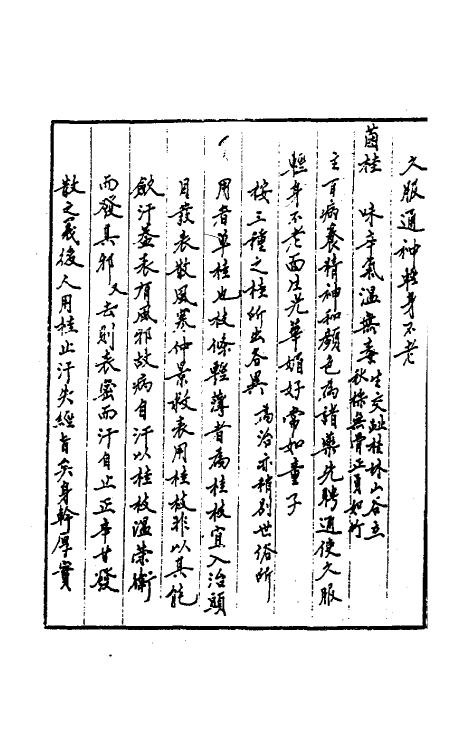 久服通神輕身不老
菌桂　味辛氣温無毒生交趾桂林山谷立
秋採無骨正員如竹
主百病養精神和顏色為諸藥先聘通使久服
輕身不老面生光華媚好常如童子
按三種之桂所出各異　為治亦稍別世俗所
用者單桂也枝條輕薄者為桂枝宜入治頭
目發表散風寒仲景救表用桂枝非以其能
歛汗葢表有風邪故病自汗以桂枝温榮衛
而發其邪　又去則表密而汗自止正辛甘發
散之義後人用桂止汗失經旨矣身幹厚實